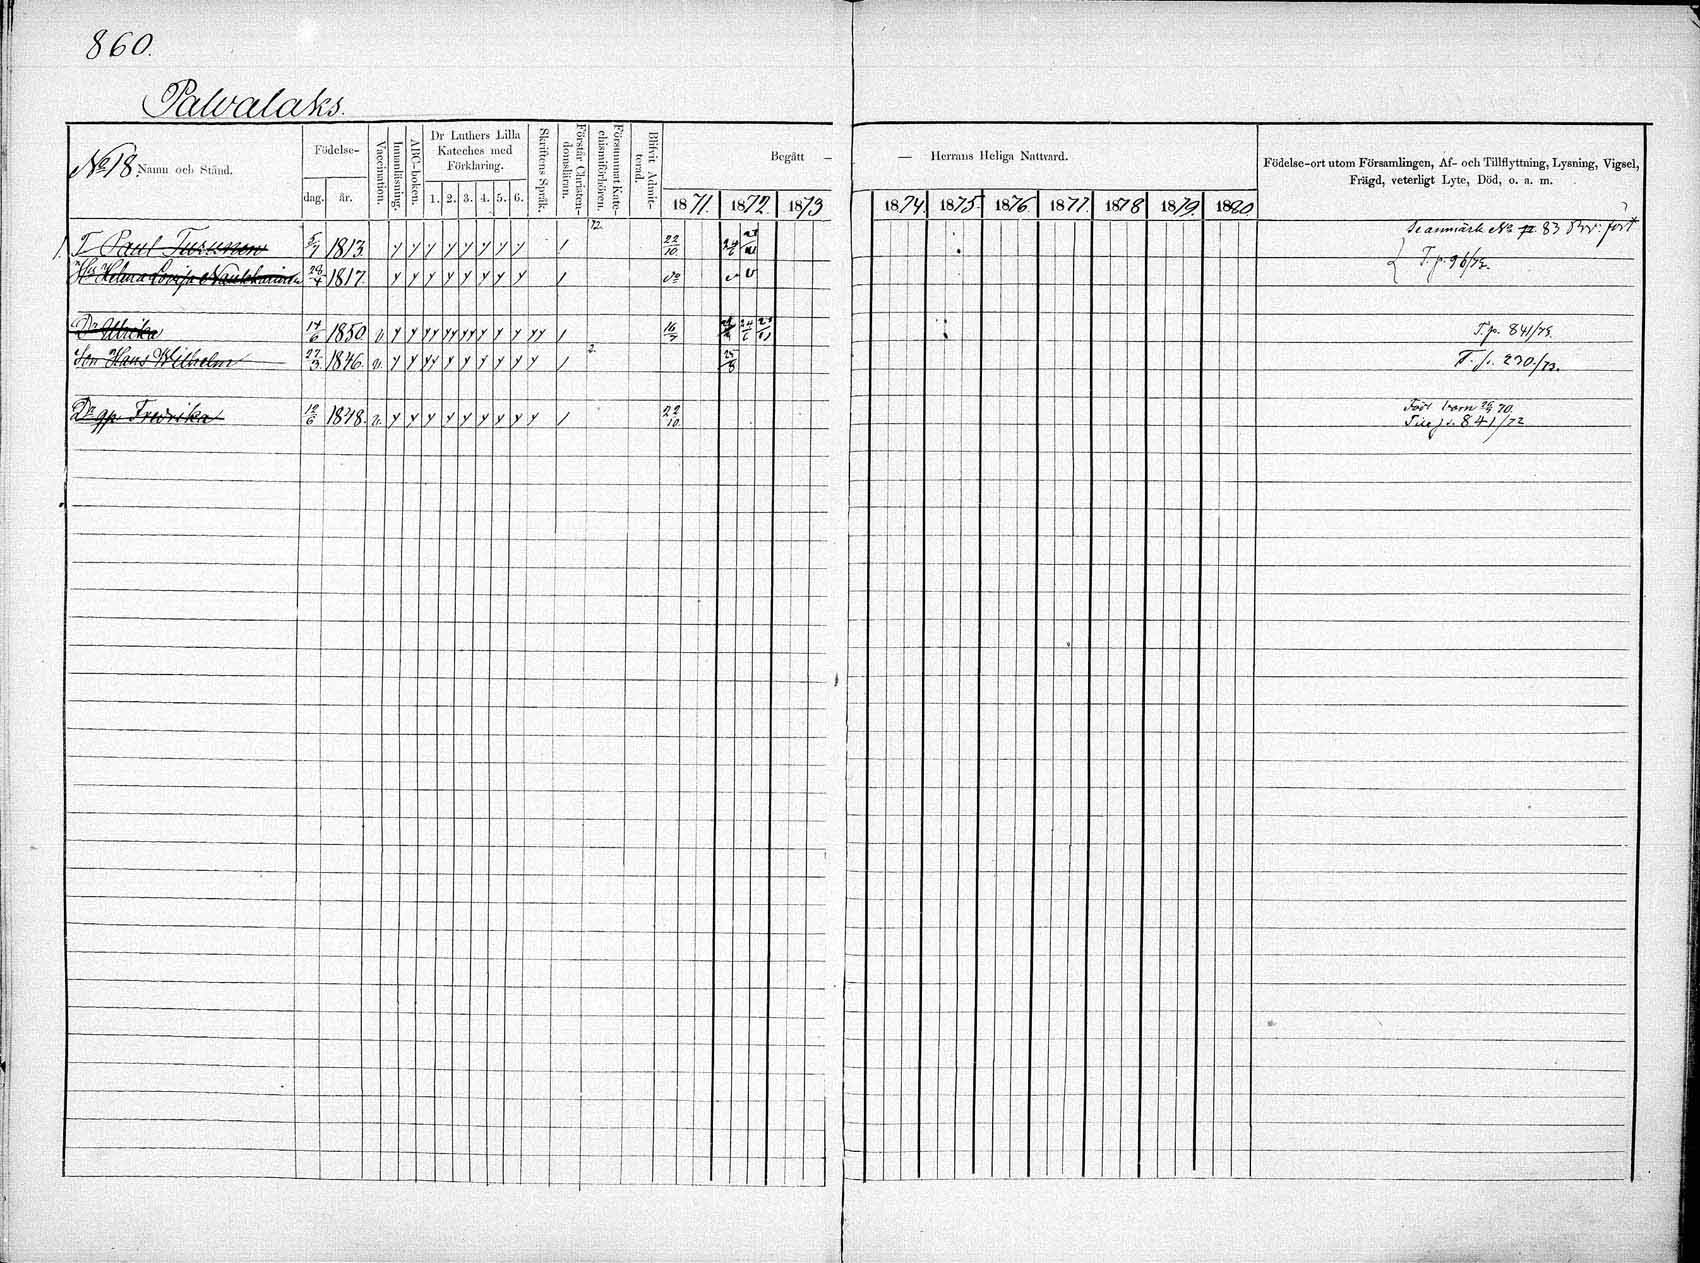 860.
Palvalaks.
No 18. Namn och Stånd.
Födelse-
dag. år.
Vaccination.
Innanläsning.
ABC-boken.
Dr Luthers Lilla
Kateches med
Förklaring.
1. 2. 3. 4. 5. 6.
Skriftens Språk.
Förstår Christen-
domsläran.
Försummat Kate-
chismiförhören.
Blifvit Admit-
terad.
Begått — — Herrans Heliga Nattvard.
1871. 1872. 1873 1874. 1875. 1876. 1877. 1878 1879. 1880
Födelse-ort utom Församlingen, Af- och Tillflyttning, Lysning, Vigsel,
Frägd, veterligt Lyte, Död, o. a. m.
1. T Paul Turunen 5/7 1813. 12. 22/10. 83
Helena Lovisa 1817. T. p. 96/73.
Dr Ulrika 14/6 1850. v. 16/7 T. p. 841/73.
Son Hans Wilhelm 27/3 1846. v. 2. 25/3 T. p. 230/73.
Dr gp. Fredrika 12/6 1848. v. 22/10. Född barn 70.
p. 841/72